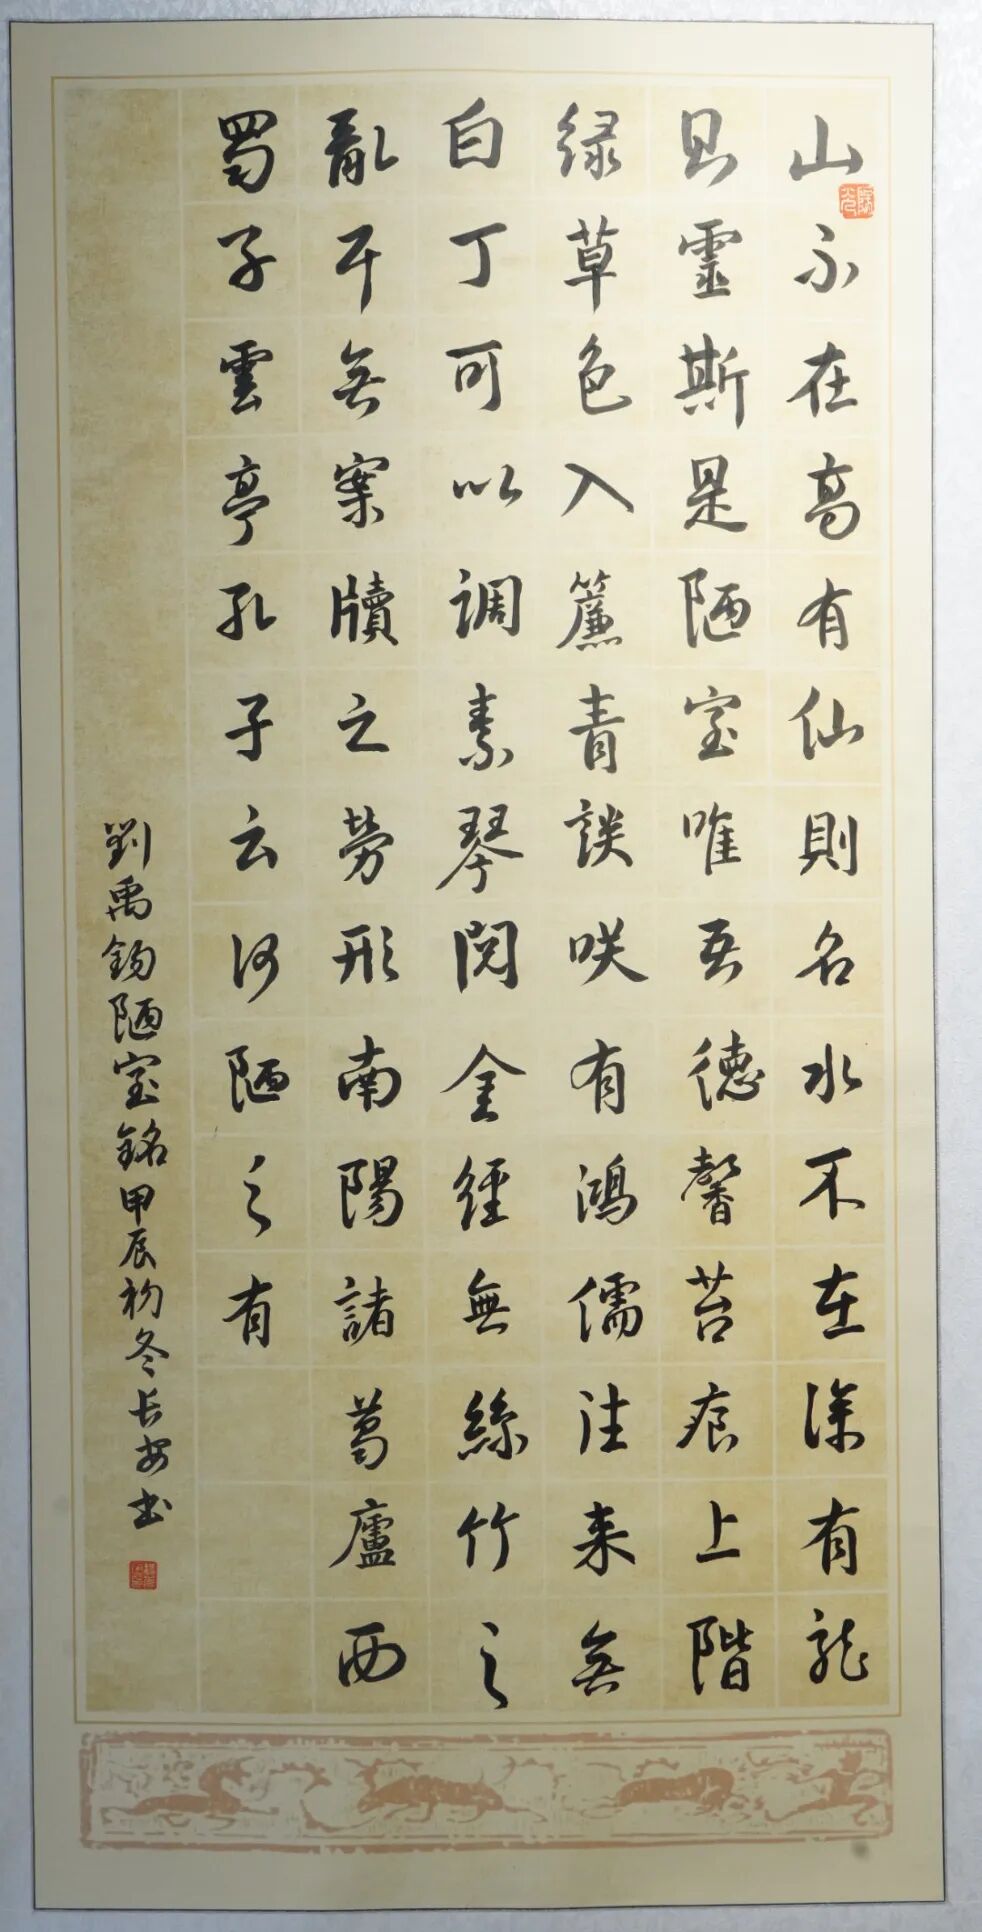 山不在高有仙則名水不在深有龍
則靈斯是陋室唯吾德馨苔痕上階
绿草色入簾青談咲有鴻儒往来無
白丁可以调素琴閱金經無絲竹之
亂耳無案牘之勞形南陽諸葛廬西
蜀子雲亭孔子云何陋之有
劉禹錫陋室銘甲辰初冬长安书